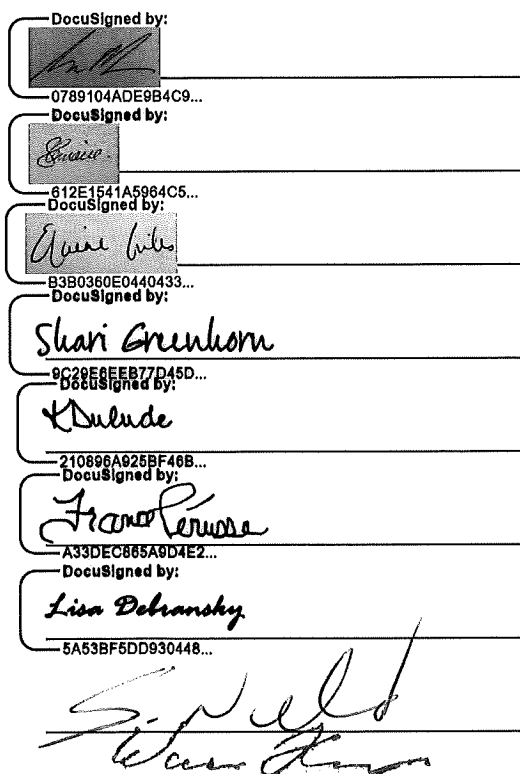 DocuSigned by:
0789104ADE9B4C9...
DocuSigned by:
612E1541A5964C5...
DocuSigned by:
Elaine Giles
B3B0360E0440433...
DocuSigned by:
Shari Greenhorn
9C29E6EEB77D45D...
DocuSigned by:
KDulude
210896A925BF46B...
DocuSigned by:
France Pérusse
A33DEC865A9D4E2...
DocuSigned by:
Lisa Debransky
5A53BF5DD930448...